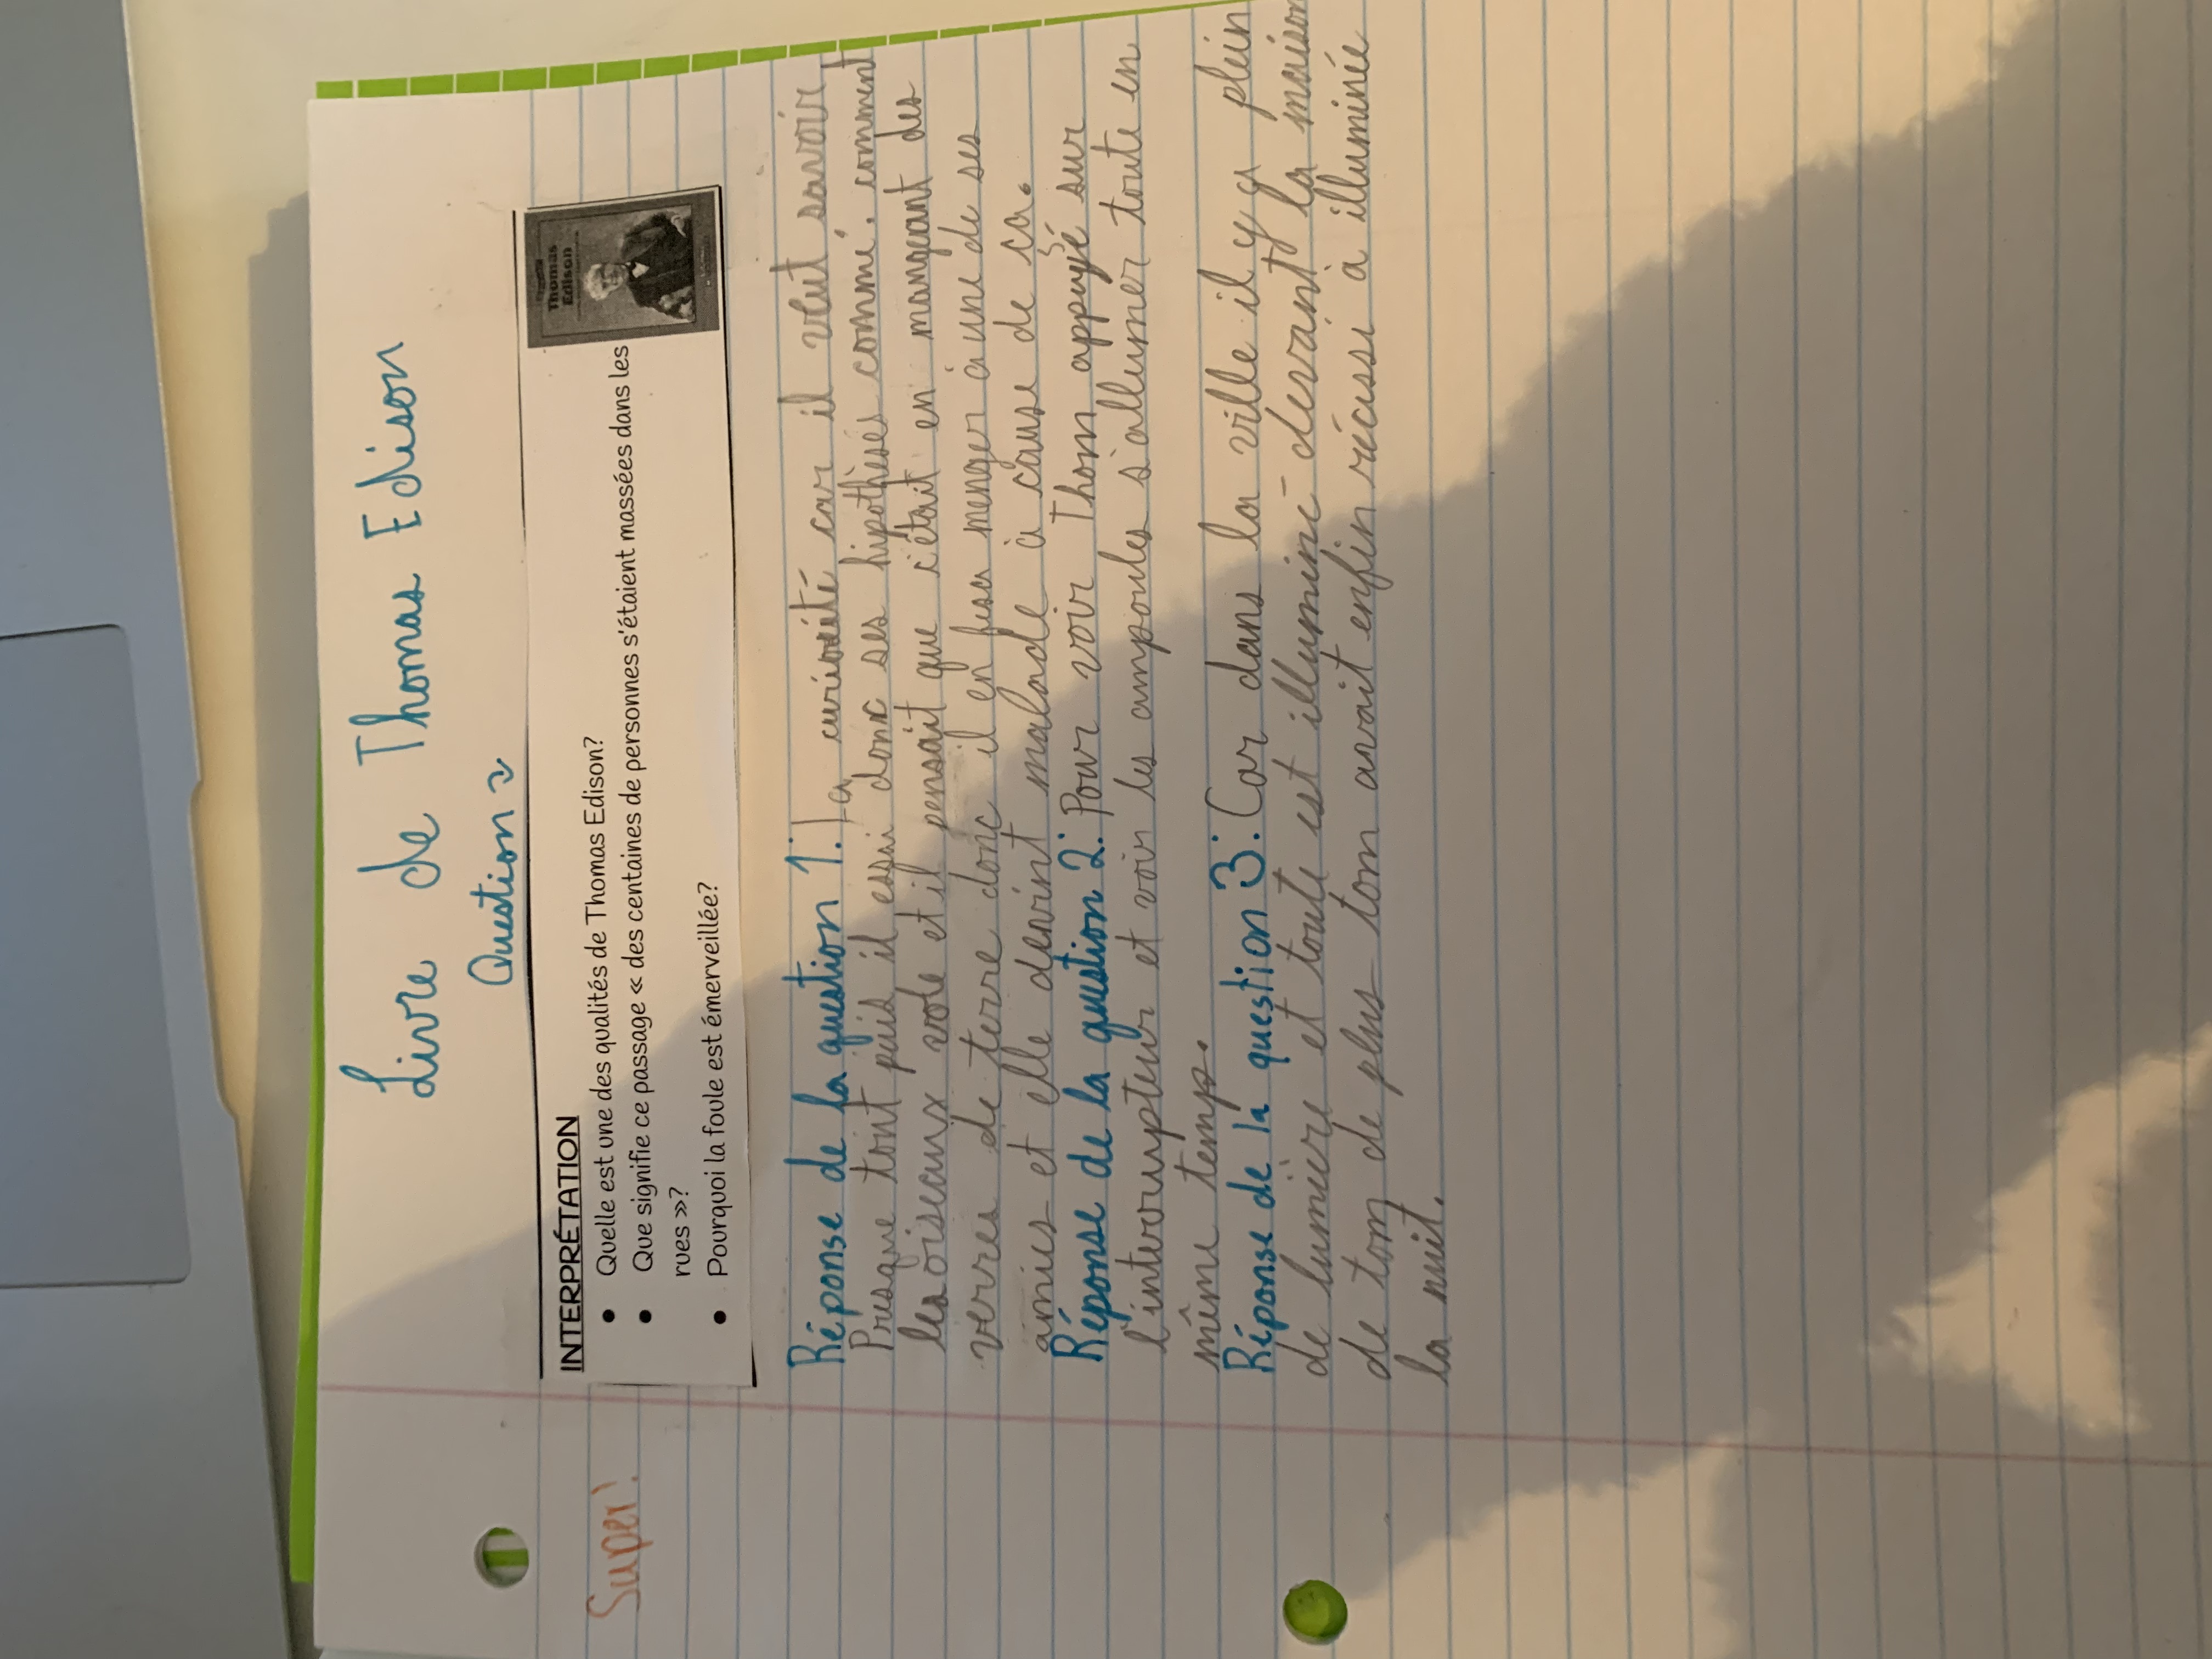 Livre de Thomas Edison
Question
INTERPRÉTATION
• Quelle est une des qualités de Thomas Edison?
• Que signifie ce passage « des centaines de personnes s'étaient massées dans les
rues »?
• Pourquoi la foule est émerveillée?
Thomas
Edison
Super!
Réponse de la question 1: La curiosité car il veut savoir
Presque tout puid il essai donc ses hipothèses comme. comment
les oiseaux vole et il pensait que c'était en mangeant des
verres de terre donc il en fesa menger à une de ses
amies et elle devint malade à cause de ça.
Réponse de la question 2: Pour voir Thom appuyé sur
l'interrupteur et voir les ampoules s'allumer toute en
même temps.
Réponse de la question 3: Car dans la ville il y a plein
de lumière et toute est illuminé devant la maison
de tom de plus tom avait enfin réussi à illuminée
la nuit.